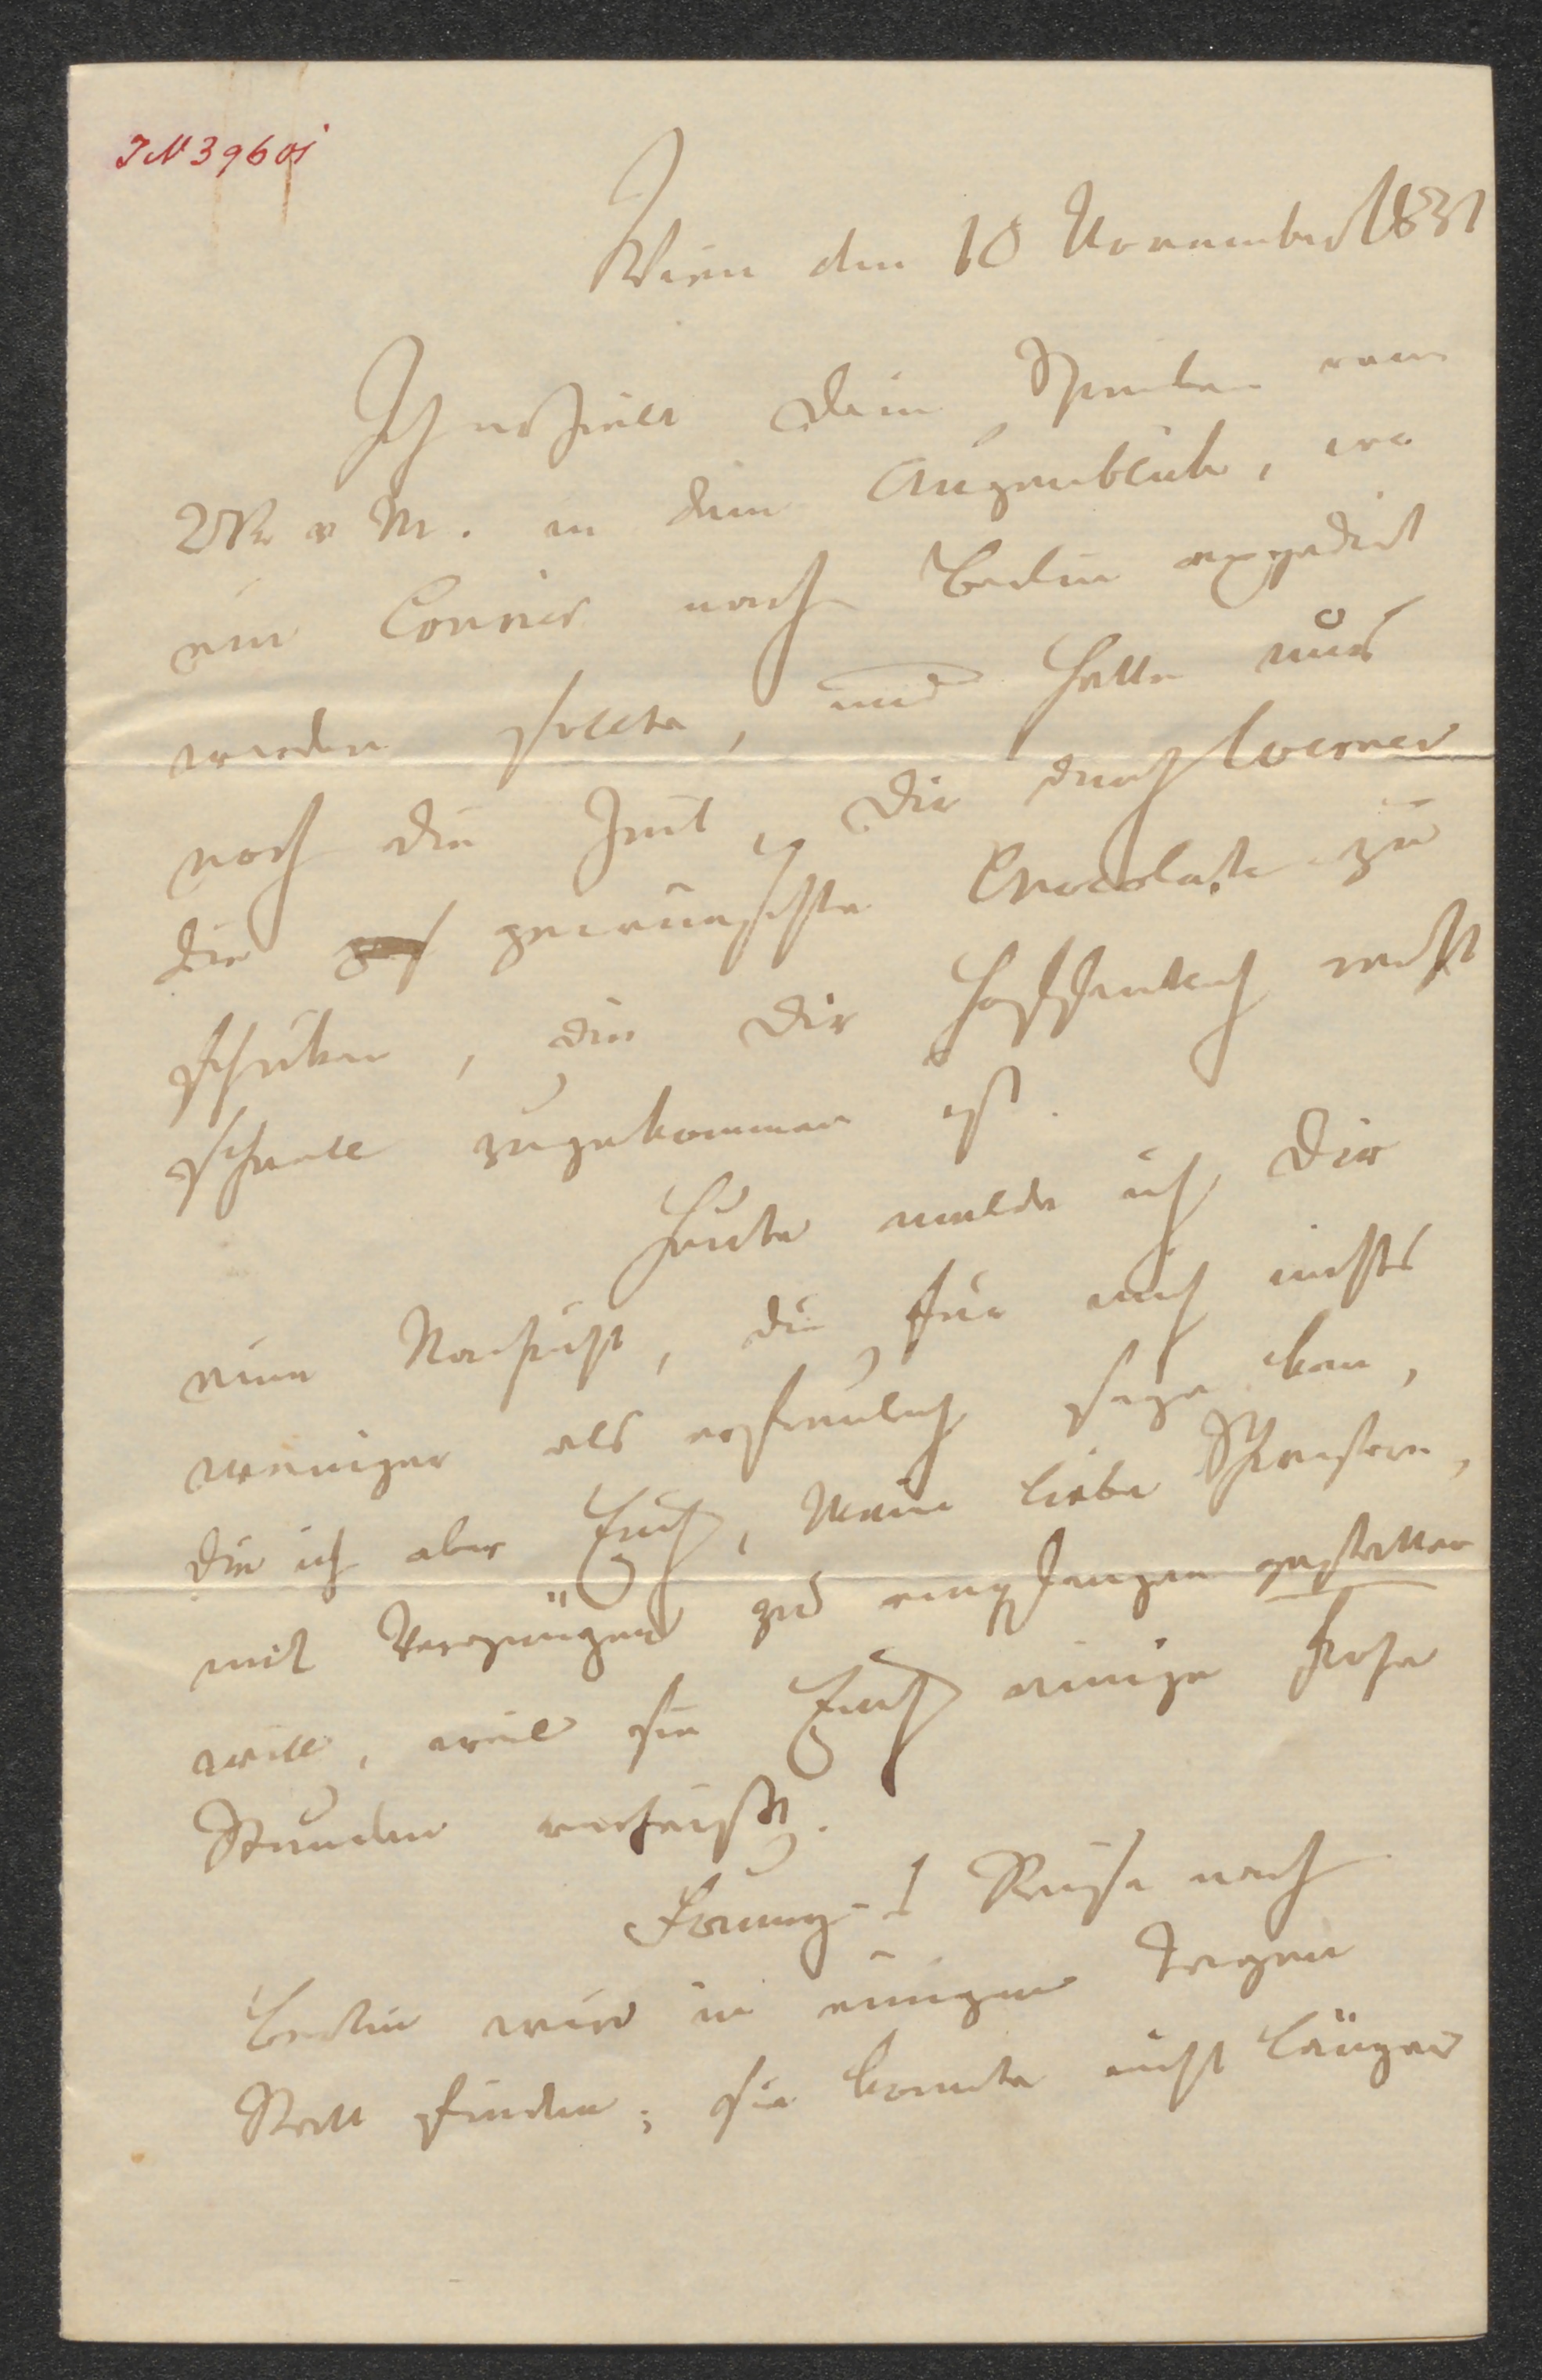 IN 39601
Wien den 10 November 1831
Ich erhielt Dein Schreiben vom
v M. in dem Augenblicke, wo
ein Courier nach Berlin expedirt
werden sollte, und hatte nur
noch die Zeit, Dir durch Werner
die gewünschte Chocolate zu
schicken, die Dir hoffentlich recht
schnell zugekommen ist.
Heute melde ich Dir
eine Nachricht, die für mich nichts
weniger als erfreulich seyn kan,
die ich aber Euch, Meine liebe Schwestern,
mit Vergnügen zu empfangen gestatten
will, weil sie Euch einige frohe
Stunden verheißt.
Reise nach
Berlin wird in einigen Tagen
Statt finden; sie konnte nicht länger